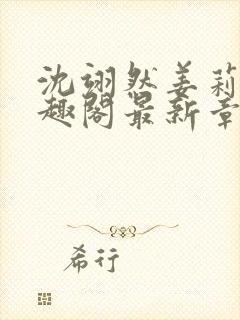 沈翊然姜莉
趣阁最新章
希行